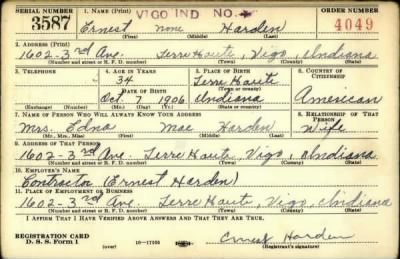 SERIAL NUMBER 1. NAME (Print) VIGO IND NO. ORDER NUMBER
3587 Ernest none Harden 4049
(First) (Middle) (Last)
2. ADDRESS (Print)
1602-3rd Ave. Terre Haute, Vigo, Indiana
(Number and street or R. F. D. number) (Town) (County) (State)
3. TELEPHONE 4. AGE IN YEARS 5. PLACE OF BIRTH 6. COUNTRY OF CITIZENSHIP
34 Terre Haute
DATE OF BIRTH (Town or county)
Oct. 7 1906 Indiana American
(Exchange) (Number) (Mo.) (Day) (Yr.) (State or country)
7. NAME OF PERSON WHO WILL ALWAYS KNOW YOUR ADDRESS 8. RELATIONSHIP OF THAT PERSON
Mrs. Edna Mae Harden Wife
(Mr., Mrs., Miss) (First) (Middle) (Last)
9. ADDRESS OF THAT PERSON
1602-3rd Ave. Terre Haute, Vigo, Indiana
(Number and street or R. F. D. number) (Town) (County) (State)
10. EMPLOYER'S NAME
Contractor (Ernest Harden)
11. PLACE OF EMPLOYMENT OR BUSINESS
1602-3rd Ave. Terre Haute, Vigo, Indiana
(Number and street or R. F. D. number) (Town) (County) (State)
I AFFIRM THAT I HAVE VERIFIED ABOVE ANSWERS AND THAT THEY ARE TRUE.
REGISTRATION CARD
D. S. S. Form 1 (over) 16-17105 Ernest Harden
(Registrant's signature)